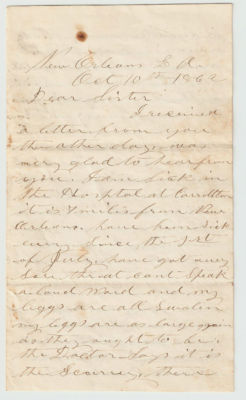 New Orleans La.
Oct 10th 1862
Dear Sister
I received
a letter from you
the other day, was
very glad to hear from
you. I am Sick in
the Hospital at Carrollton
it is 8 miles from New
Orleans. have been Sick
every Since the 1st
of July, have got a very
Sore throat cant Speak
a loud Word and my
leggs are all Swolen
my leggs are as large again
as they ought to be.
the Doctor Says it is
the Scurvey, there